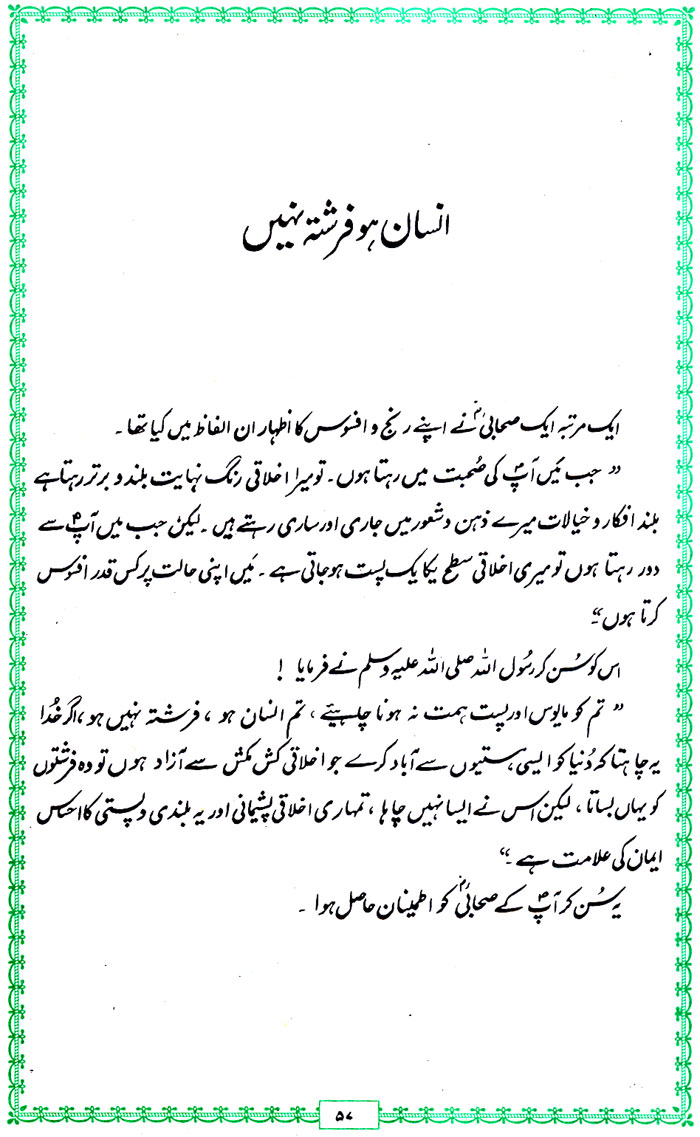 انسان ہو فرشتہ نہیں
ایک مرتبہ ایک صحابیؓ نے اپنے رنج و افسوس کا اظہار ان الفاظ میں کیا تھا ۔
” جب مَیں آپؐ کی صُحبت میں رہتا ہوں ۔ تو میرا اخلاقی رنگ نہایت بلند و برتر رہتا ہے
بلند افکار و خیالات میرے ذہن و شعور میں جاری اور ساری رہتے ہیں ۔ لیکن جب میں آپؐ سے
دور رہتا ہوں تو میری اخلاقی سطح یکایک پست ہو جاتی ہے ۔ مَیں اپنی حالت پر کس قدر افسوس
کرتا ہوں “
اس کو سُن کر رسُول اللہ صلی اللہ علیہ وسلم نے فرمایا !
” تم کو مایوس اور پست ہمت نہ ہونا چاہئیے ، تم انسان ہو ، فرشتہ نہیں ہو ، اگر خُدا
یہ چاہتا کہ دُنیا کو ایسی ہستیوں سے آباد کرے جو اخلاقی کش مکش سے آزاد ہوں تو وہ فرشتوں
کو یہاں بساتا ، لیکن اس نے ایسا نہیں چاہا ، تمہاری اخلاقی پشیمانی اور یہ بلندی و پستی کا احساس
ایمان کی علامت ہے ۔“
یہ سُن کر آپؐ کے صحابیؓ کو اطمینان حاصل ہوا ۔
۵۷